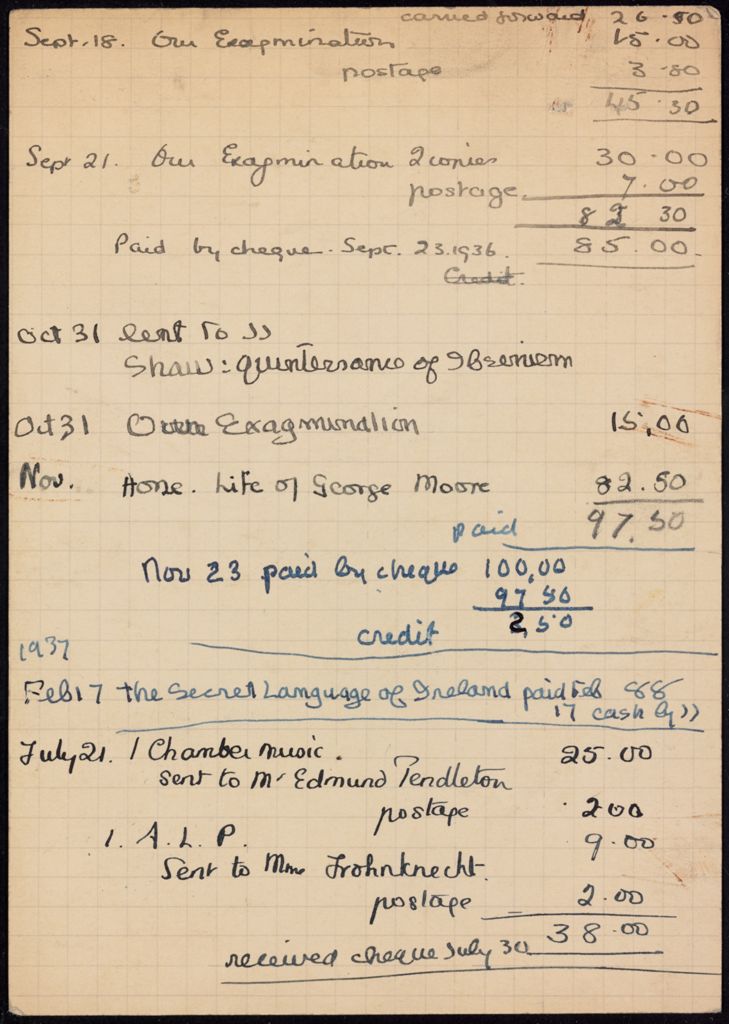 carried forward 26.50
Sept. 18. Our Exagmination 15.00
postage 3.80
45.30
Sept 21. Our Exagmination 2 copies 30.00
postage 7.00
82 30
Paid by cheque. Sept. 23.1936. 85.00
Credit.
Oct 31 lent to JJ
Shaw: Quintessance of Ibsenism
Oct 31 Our Exagmination 15,00
Nov. Hone. Life of George Moore 82.50
paid 97.50
Nov 23 paid by cheque 100,00
97 50
credit 2,50
1937
Feb 17 the Secret Language of Ireland paid Feb 88
17 cash by JJ
July 21. 1 Chamber music. 25.00
sent to Mr Edmund Pendleton
postage 200
1. A. L. P. 9.00
Sent to Mme Frohnknecht.
postage 2.00
38.00
received cheque July 30